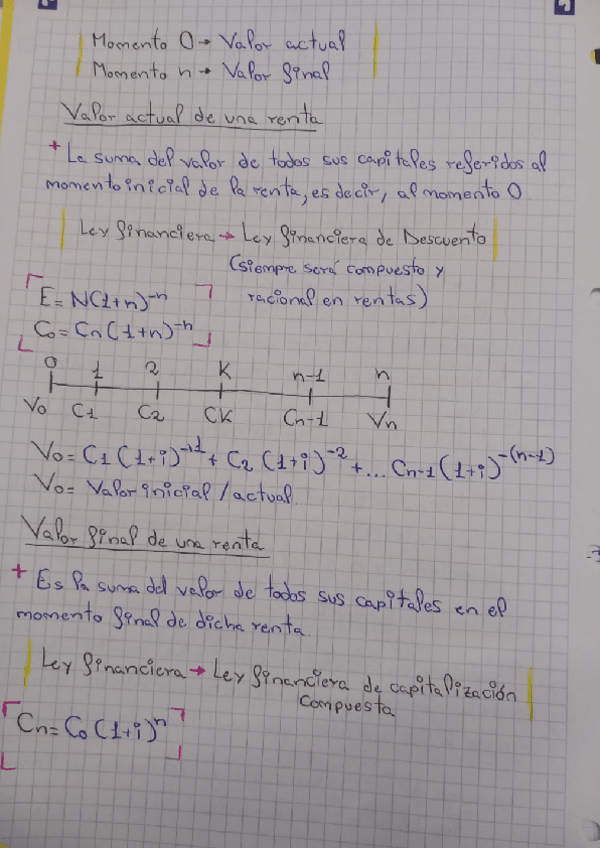 Momento 0 → Valor actual
Momento n → Valor final
Valor actual de una renta
+ La suma del valor de todos sus capitales referidos al
momento inicial de la renta, es decir, al momento 0
Ley financiera → Ley financiera de Descuento
(siempre será compuesto y
racional en rentas)
E = N(1+n)^-n
C0 = Cn(1+n)^-n
0 1 2 K n-1 n
V0 C1 C2 CK Cn-1 Vn
V0 = C1 (1+i)^-1 + C2 (1+i)^-2 + ... Cn-1 (1+i)^-(n-1)
V0 = Valor inicial / actual
Valor final de una renta
+ Es la suma del valor de todos sus capitales en el
momento final de dicha renta
Ley financiera → Ley financiera de capitalización
compuesta
Cn = C0 (1+i)^n